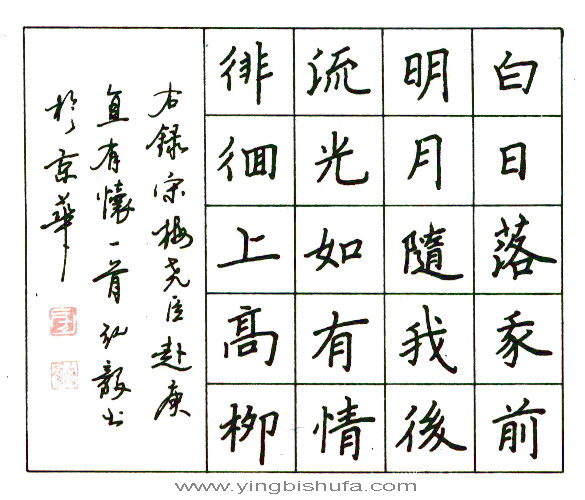 白日落豕前
明月隨我後
流光如有情
徘徊上高柳
右錄宋梅尧臣赴庚
直有懷一首弘毅书
於京華
www.yingbishufa.com